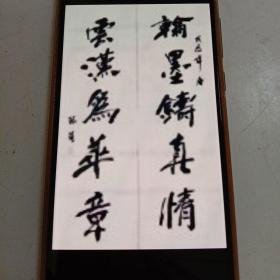 翰墨鑄真情
雲漢為華章